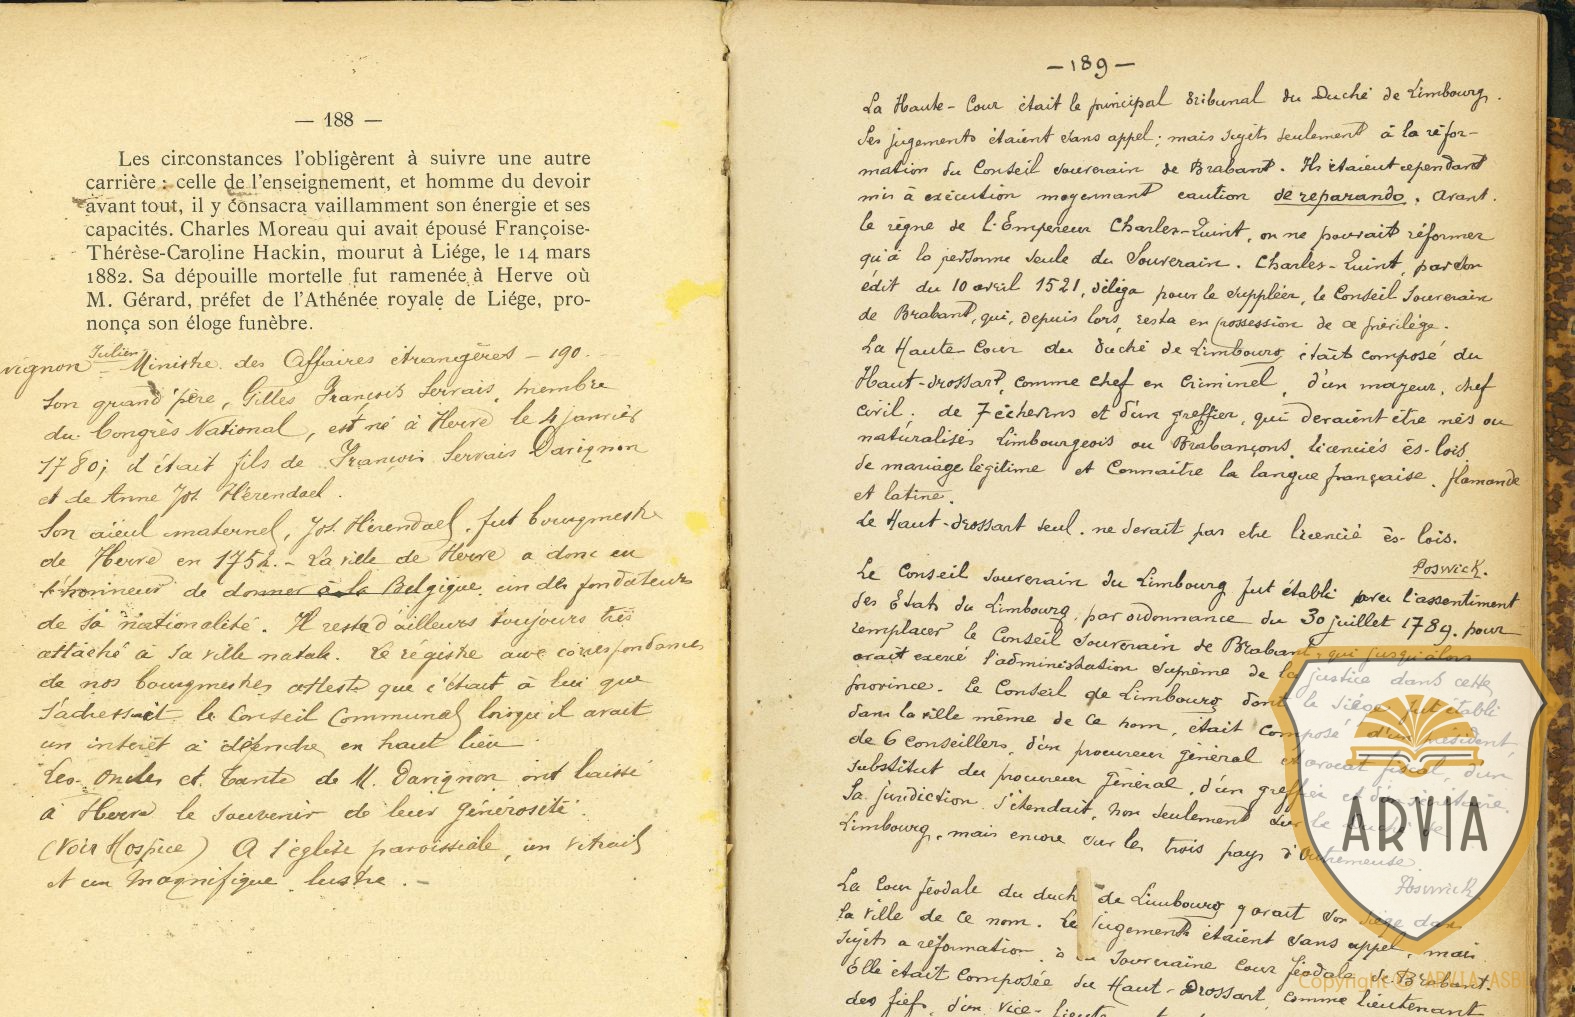 — 188 —
Les circonstances l'obligèrent à suivre une autre
carrière : celle de l'enseignement, et homme du devoir
avant tout, il y consacra vaillamment son énergie et ses
capacités. Charles Moreau qui avait épousé Françoise-
Thérèse-Caroline Hackin, mourut à Liége, le 14 mars
1882. Sa dépouille mortelle fut ramenée à Herve où
M. Gérard, préfet de l'Athénée royale de Liége, pro-
nonça son éloge funèbre.
vignon Julien Ministre des Affaires étrangères – 190.
Son grand'père, Gilles François Servais, membre
du Congrès National, est né à Herve le 4 janvier
1780; il était fils de François Servais Davignon
et de Anne Jos. Hérendael.
Son aïeul maternel, Jos. Hérendael, fut bourgmestre
de Herve en 1752. – La ville de Herve a donc eu
l'honneur de donner à la Belgique un des fondateurs
de sa nationalité. Il resta d'ailleurs toujours très
attaché à sa ville natale. Le régistre aux correspondances
de nos bourgmestres atteste que c'était à lui que
s'adressait le Conseil Communal lorsqu'il avait
un intérêt à défendre en haut lieu
Les Oncles et Tante de M. Davignon ont laissé
à Herve le souvenir de leur générosité.
(Voir Hospice) A l'église paroissiale, un vitrail
et un magnifique lustre. –
— 189 —
La Haute-Cour était le principal tribunal du Duché de Limbourg.
Ses jugements étaient sans appel; mais sujets seulement à la réfor-
mation du Conseil souverain de Brabant. Ils étaient cependant
mis à exécution moyennant caution de reparando. Avant
le règne de l'Empereur Charles-Quint, on ne pouvait réformer
qu'à la personne seule du Souverain. Charles-Quint, par son
édit du 10 avril 1521, délega pour le suppléer, le Conseil Souverain
de Brabant, qui, depuis lors, resta en possession de ce privilége.
La Haute Cour du duché de Limbourg était composé du
Haut-drossart, comme chef en Criminel, d'un mayeur, chef
civil. de 7 échevins et d'un greffier, qui devaient être nés ou
naturalisés Limbourgeois ou Brabançons, licenciés ès-lois
de mariage légitime et connaitre la langue française, flamande
et latine.
Le Haut-drossart seul, ne devait pas etre licencié ès-lois.
Poswick.
Le Conseil souverain du Limbourg fut établi avec l'assentiment
des Etats du Limbourg, par ordonnance du 30 juillet 1789, pour
remplacer le Conseil Souverain de Brabant, qui jusqu'alors
avait exercé l'administration suprême de la justice dans cette
province. Le Conseil de Limbourg dont le siége fut établi
dans la ville même de ce nom, était composé d'un président,
de 6 conseillers, d'un procureur général et avocat fiscal, d'un
substitut du procureur général, d'un greffier et d'un secrétaire.
Sa juridiction s'étendait, non seulement sur le duché de
Limbourg, mais encore sur les trois pays d'Outremeuse
Poswick
La Cour féodale du duché de Limbourg y avait son siége dans
la ville de ce nom. Les jugements étaient sans appel, mais
sujets a réformation à la souveraine Cour féodale de Brabant.
Elle était composée du Haut-Drossart, comme lieutenant
des fiefs, d'un vice-
ARVIA
Copyright © ARVIA ASBL